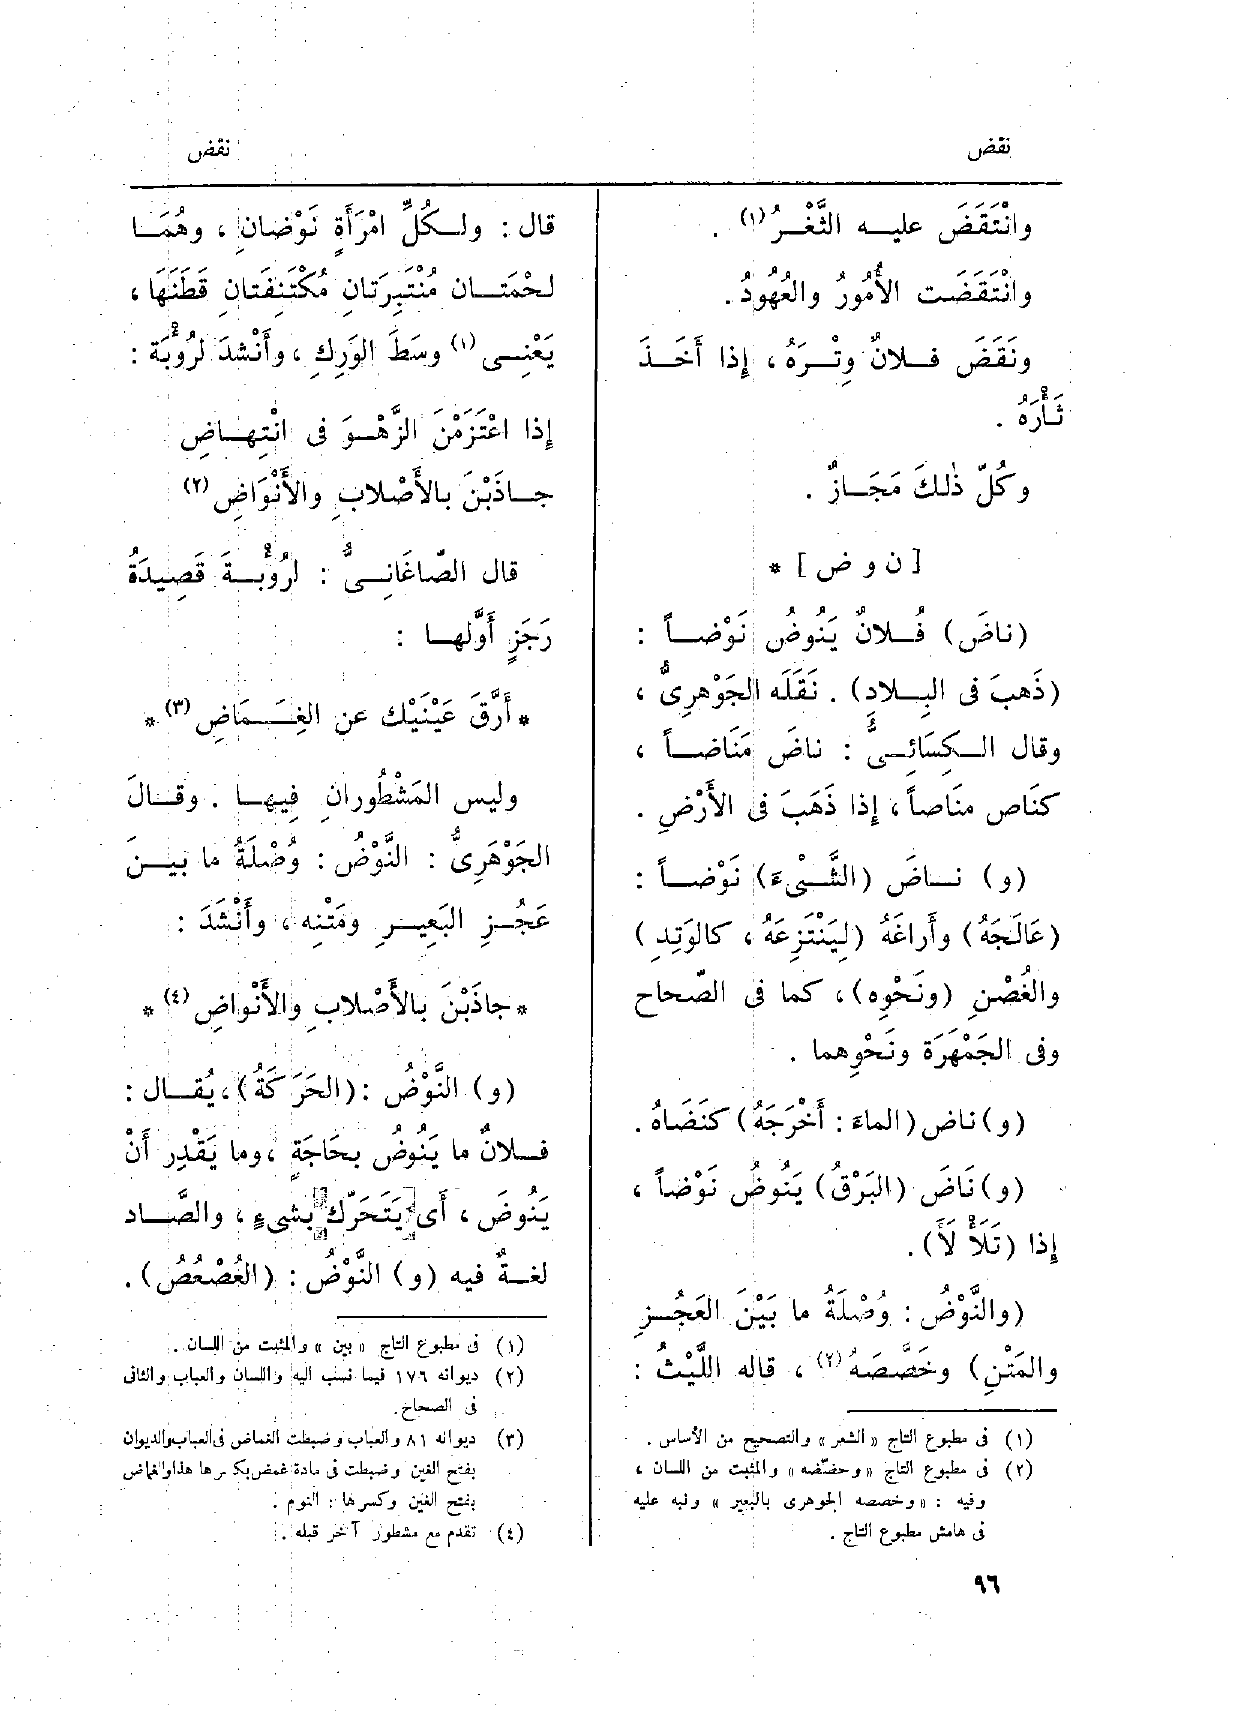 نقض
نقض
وانْتَقَضَ عليه الثَّغْرُ(١) .
وانْتَقَضَت الأُمُورُ والعُهُودُ .
ونَقَضَ فلانٌ وِتْرَهُ ، إذا أَخَذَ
ثَأْرَهُ .
وكُلّ ذٰلكَ مَجَازٌ .
[ ن و ض ] *
(ناضَ) فُلانٌ يَنُوضُ نَوْضاً :
(ذَهبَ فى البِلاد) . نَقَلَه الجَوْهرِىُّ ،
وقال الكِسَائىُّ : ناضَ مَنَاضاً ،
كنَاص منَاصاً ، إذا ذَهَبَ فى الأَرْضِ .
(و) ناضَ (الشَّىْءَ) نَوْضاً :
(عَالَجَهُ) وأَراغَهُ (لِيَنْتَزِعَهُ ، كالوَتِدِ)
والغُصْنِ (ونَحْوِه) ، كما فى الصّحاح
وفى الجَمْهَرَة ونَحْوِهما .
(و) ناض (الماءَ : أَخْرَجَهُ) كنَضَاهُ .
(و) نَاضَ (البَرْقُ) يَنُوضُ نَوْضاً ،
إذا (تَلَأْلَأَ) .
(والنَّوْضُ : وُصْلَةُ ما بَيْنَ العَجُزِ
والمَتْنِ) وخَصَّصَهُ(٢) ، قاله اللَّيْثُ :
(١) فى مطبوع التاج « الشعر » والتصحيح من الأساس .
(٢) فى مطبوع التاج « وحضّضه » والمثبت من اللسان ،
وفيه : « وخصصه الجوهرى بالبعير » ونبه عليه
فى هامش مطبوع التاج .
قال : ولكُلِّ امْرَأَةٍ نَوْضانِ ، وهُمَا
لحْمَتَانِ مُنْتَبِرَتانِ مُكْتَنِفَتانِ قَطَنَهَا ،
يَعْنِى(١) وسَطَ الوَرِكِ ، وأَنْشدَ لرُؤْبَة :
إذا اعْتَزَمْنَ الزَّهْوَ فى انْتِهاضِ
جاذَبْنَ بالأَصْلابِ والأَنْوَاضِ(٢)
قال الصّاغَانىُّ : لرُؤْبةَ قَصِيدَةُ
رَجَزٍ أَوَّلها :
* أَرَّقَ عَيْنَيْك عن الغِمَاضِ(٣) *
وليس المَشْطُورانِ فِيها . وقالَ
الجَوْهَرِىُّ : النَّوْضُ : وُصْلَةُ ما بينَ
عَجُزِ البَعِيرِ ومَتْنِه ، وأَنْشَدَ :
* جاذَبْنَ بالأَصْلابِ والأَنْواضِ(٤) *
(و) النَّوْضُ : (الحَرَكَةُ) ، يُقالُ :
فلانٌ ما يَنُوضُ بحَاجَةٍ ، وما يَقْدِر أَنْ
يَنُوضَ ، أَى يَتَحَرّكَ بشىءٍ ، والصَّاد
لغةٌ فيه (و) النَّوْضُ : (العُصْعُصُ) .
(١) فى مطبوع التاج « بين » والمثبت من اللسان .
(٢) ديوانه ١٧٦ فيما نسب اليه واللسان والعباب والثانى
فى الصحاح .
(٣) ديوانه ٨١ والعباب وضبطت الغماض فى العباب والديوان
بفتح الغين وضبطت فى مادة غمض بكسرها هذا والغماض
بفتح الغين وكسرها : النوم .
(٤) تقدم مع مشطور آخر قبله .
٩٦